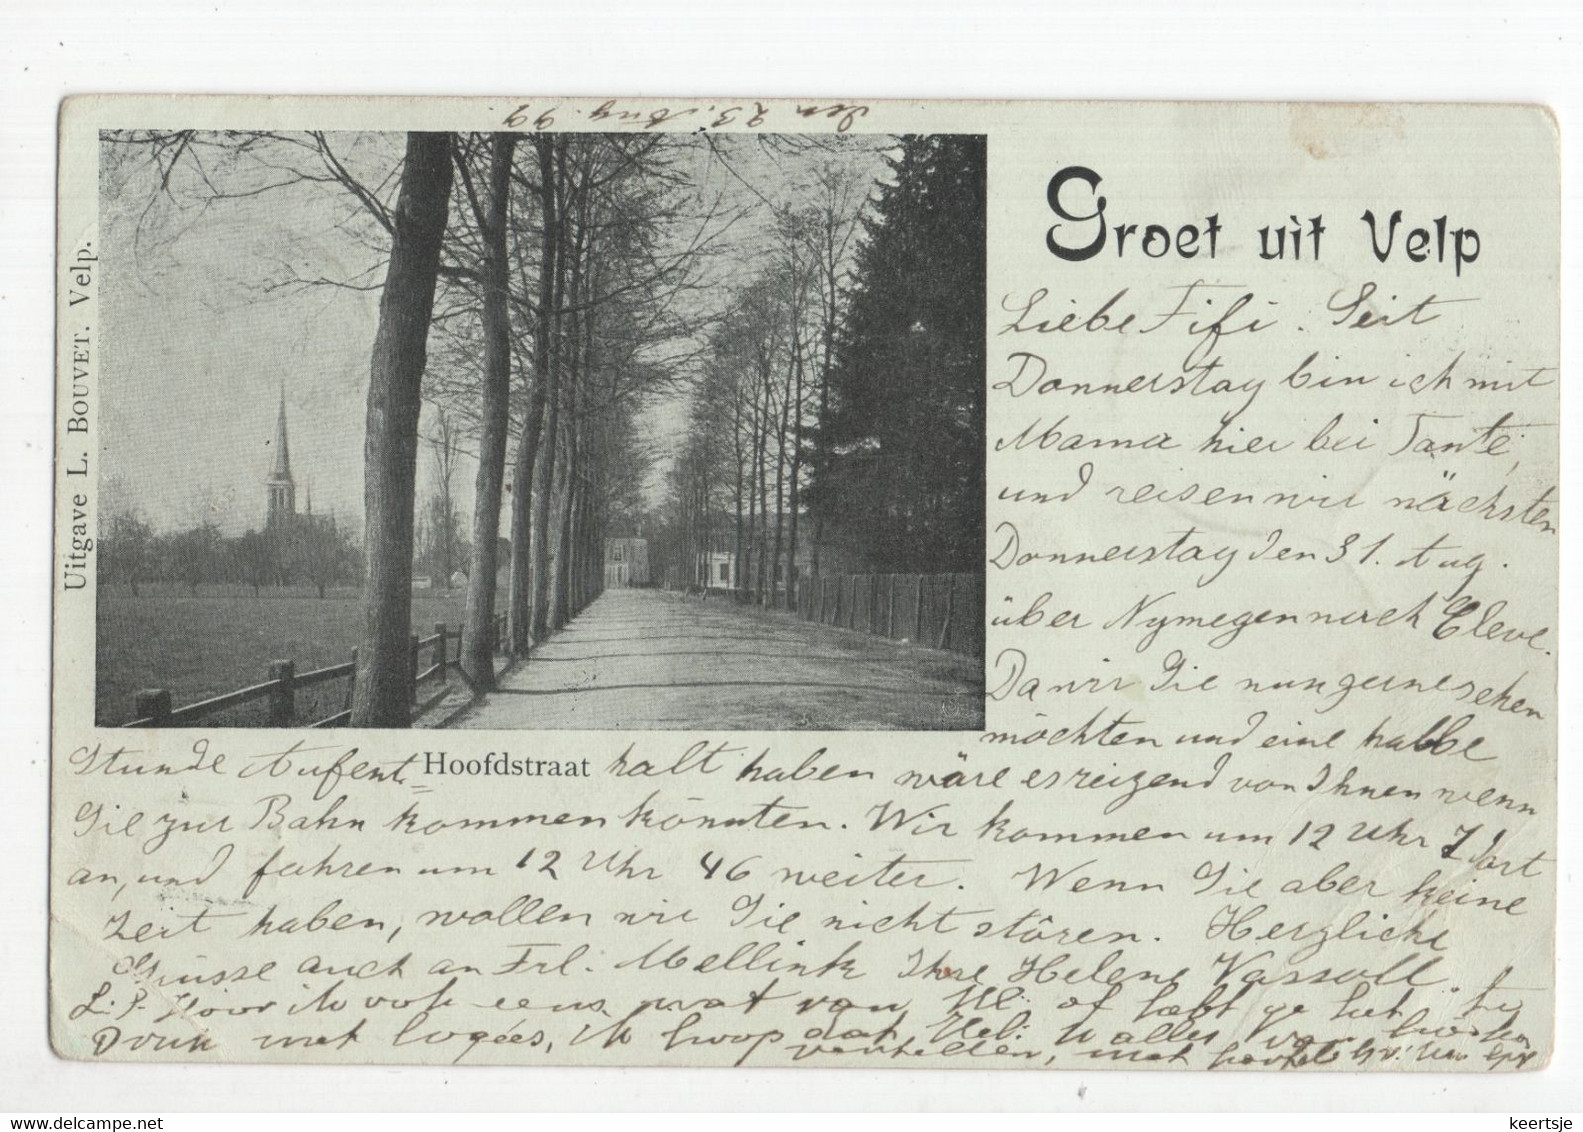 den 23. Aug. 99.
Groet uit Velp
Uitgave L. BOUVET. Velp.
Liebe Fifi. Seit
Donnerstag bin ich mit
Mama hier bei Tante,
und reisen wir nächsten
Donnerstag den 31. Aug.
über Nymegen nach Cleve.
Da wir Sie nun gerne sehen
möchten und eine halbe
Stunde Aufent- Hoofdstraat halt haben wäre es reizend von Ihnen wenn
Sie zur Bahn kommen könnten. Wir kommen um 12 Uhr dort
an, und fahren um 12 Uhr 46 weiter. Wenn Sie aber keine
Zeit haben, wollen wir Sie nicht stören. Herzliche
Grüsse auch an Frl. Mellink Ihre Helene
L. F. Hoor ik ook eens wat van of hebt ge het te
Druk met logées, ik hoop dat u alles van
vertellen, met
keertsje